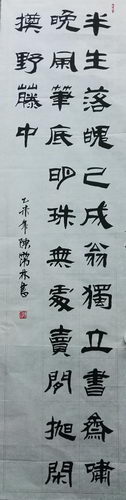 半生落魄已成翁獨立書齋嘯
晚風筆底明珠無處賣閑抛閑
擲野藤中
乙未年陳常林書